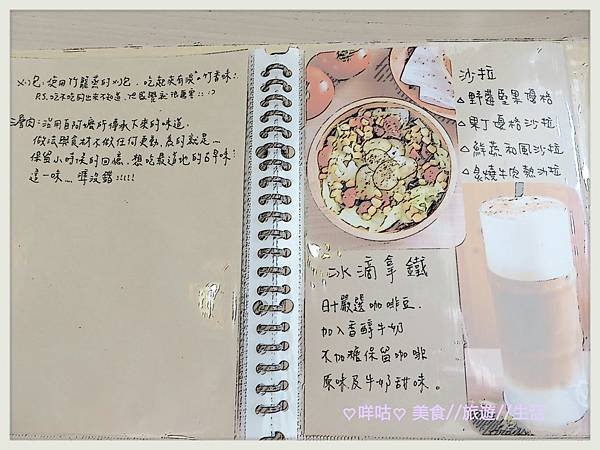 使用竹籠蒸的
吃起來有淡淡竹香味
滷肉：沿用自阿嬤所傳承下來的味道，
做法與食材不做任何更動，為的就是～
保留小時候的回憶，想吃最道地的古早味
這一味… 準沒錯!!!!!
沙拉
△野莓堅果優格
△果丁優格沙拉
△鮮蔬和風沙拉
△炙燒牛肉熱沙拉
冰滴拿鐵
嚴選咖啡豆.
加入香醇牛奶
不加糖保留咖啡
原味及牛奶甜味。
♡咩咕♡ 美食//旅遊//生活